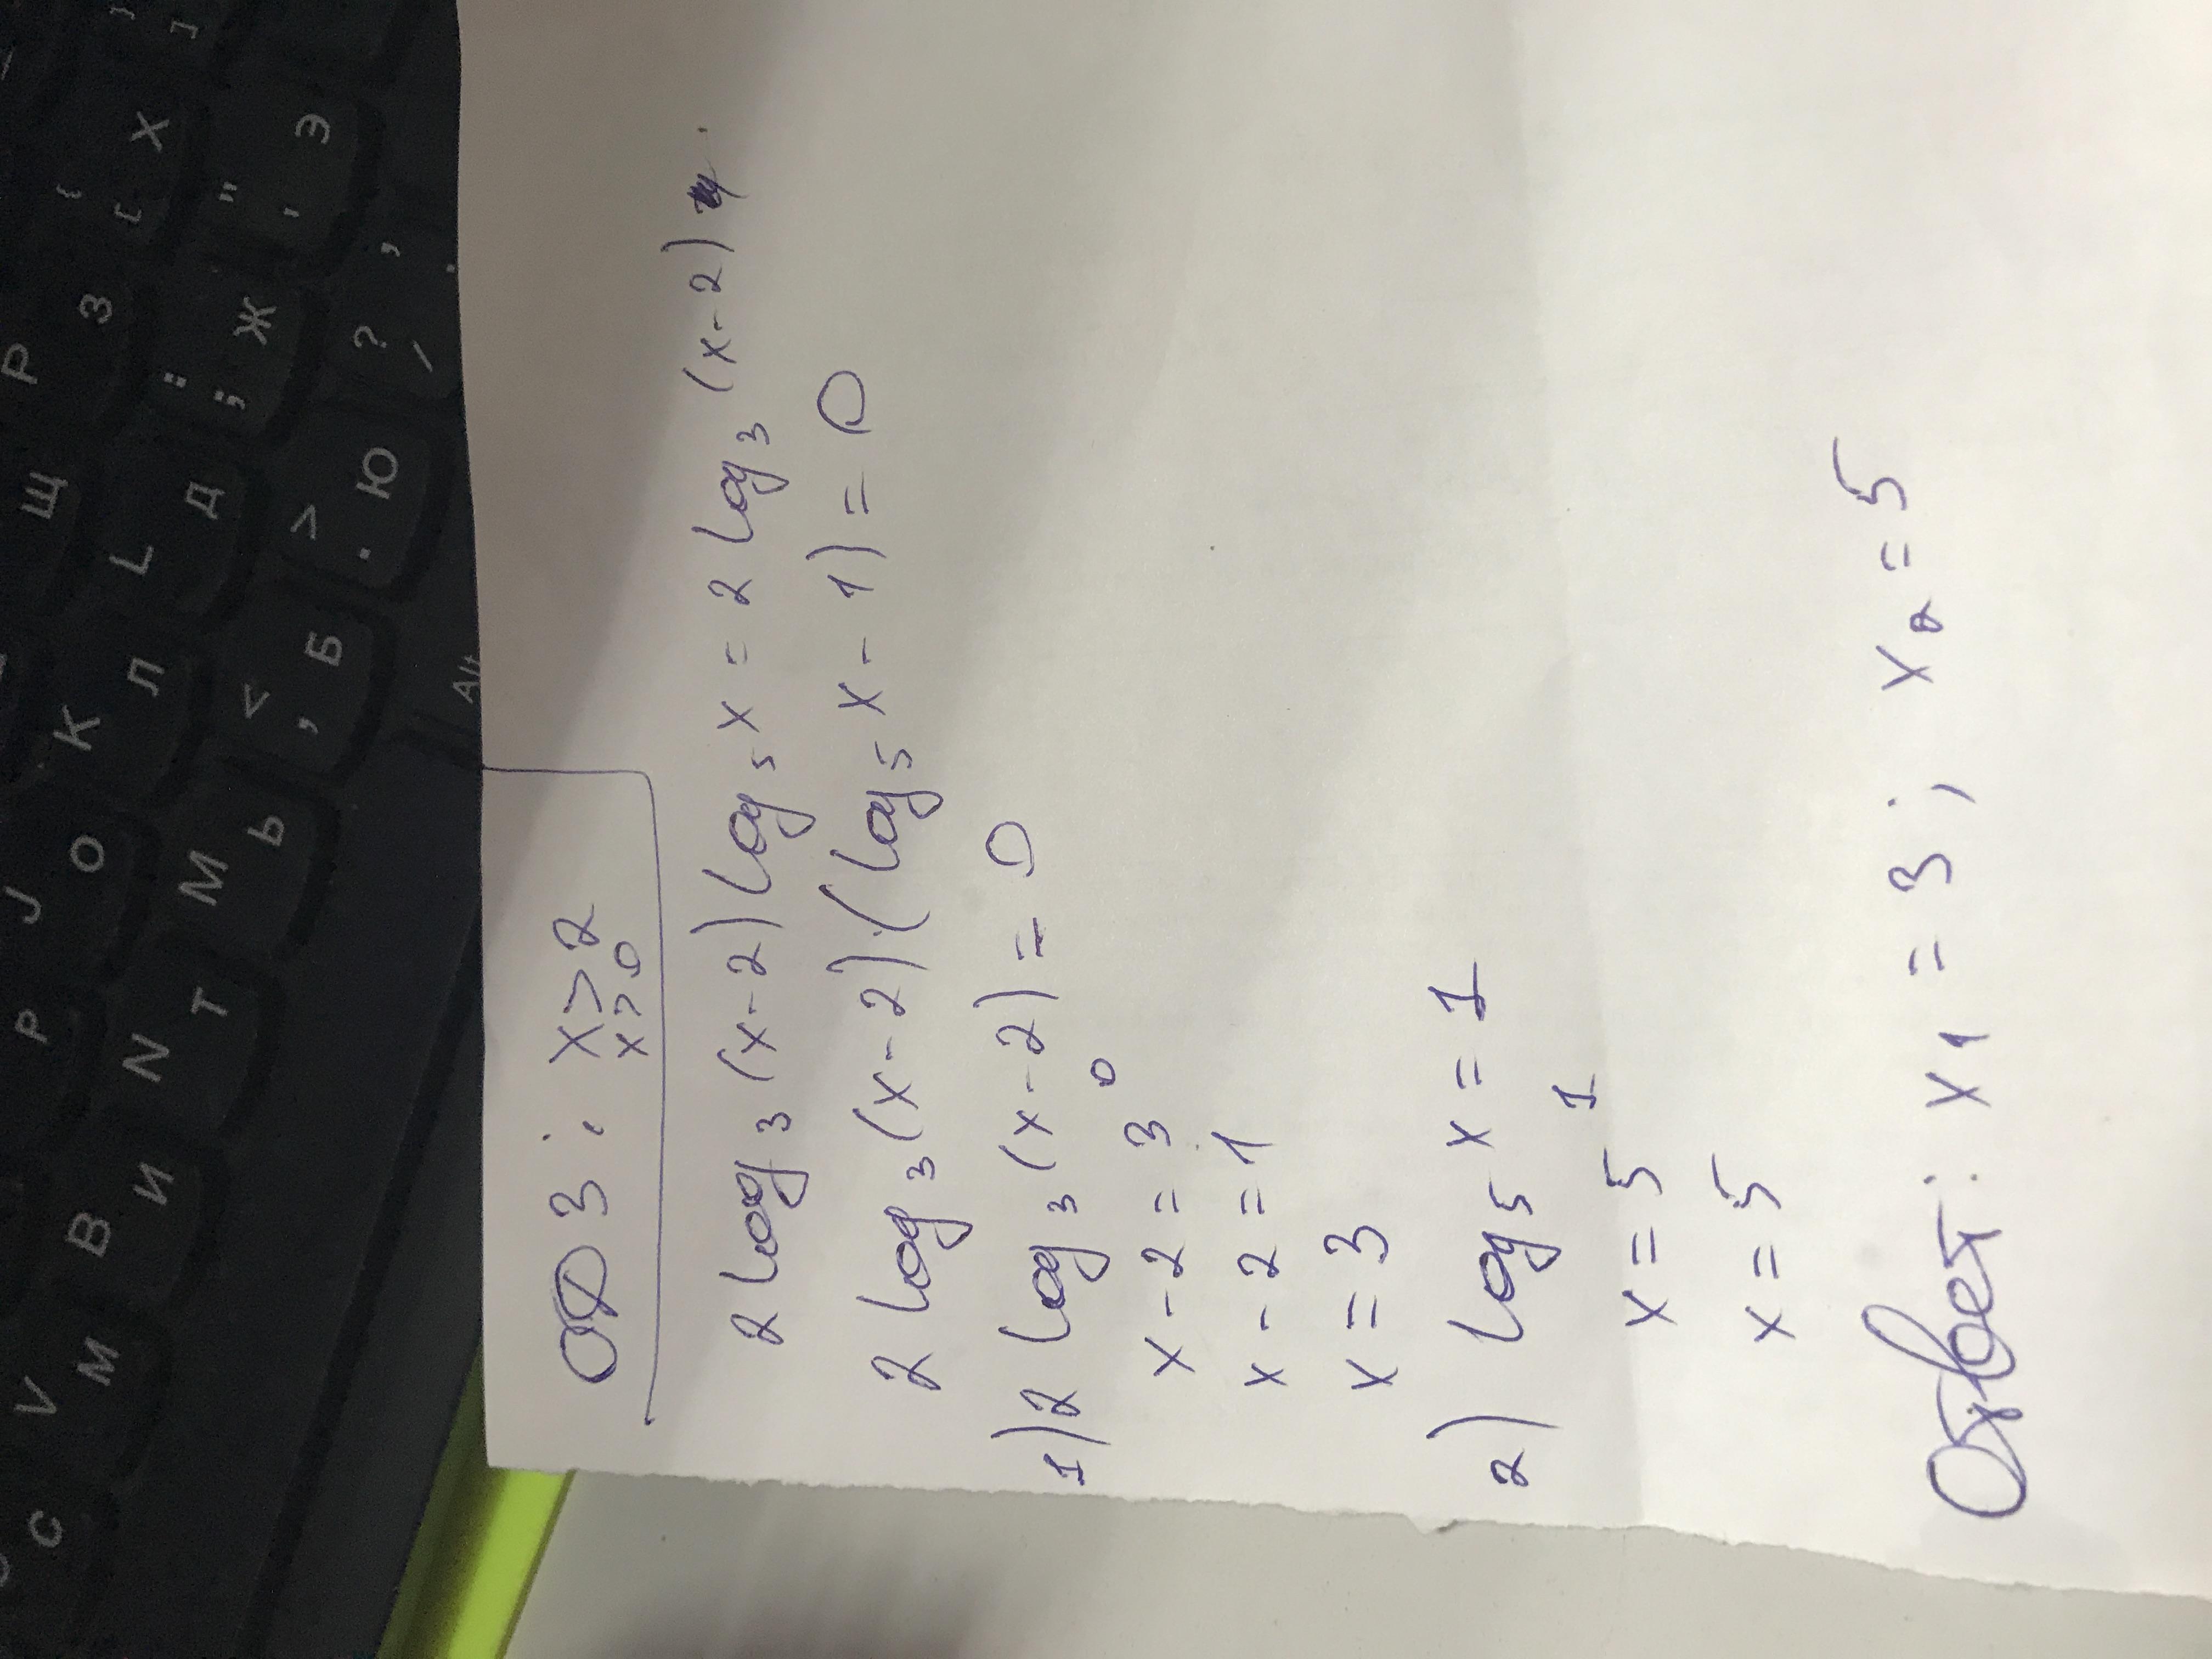 ОДЗ: x>2
x>0
2 log₃(x-2) log₅x = 2 log₃(x-2)
2 log₃(x-2)·(log₅x-1)=0
1) 2 log₃(x-2)=0
x-2=3⁰
x-2=1
x=3
2) log₅x=1
x=5¹
x=5
Ответ: x₁=3; x₂=5
C
V М
В И
P N Т
J О М Ь
К Л < , Б
Щ L Д > . Ю
Р З : ; Ж ? /
{ [ Х " ' Э
} ]
Alt